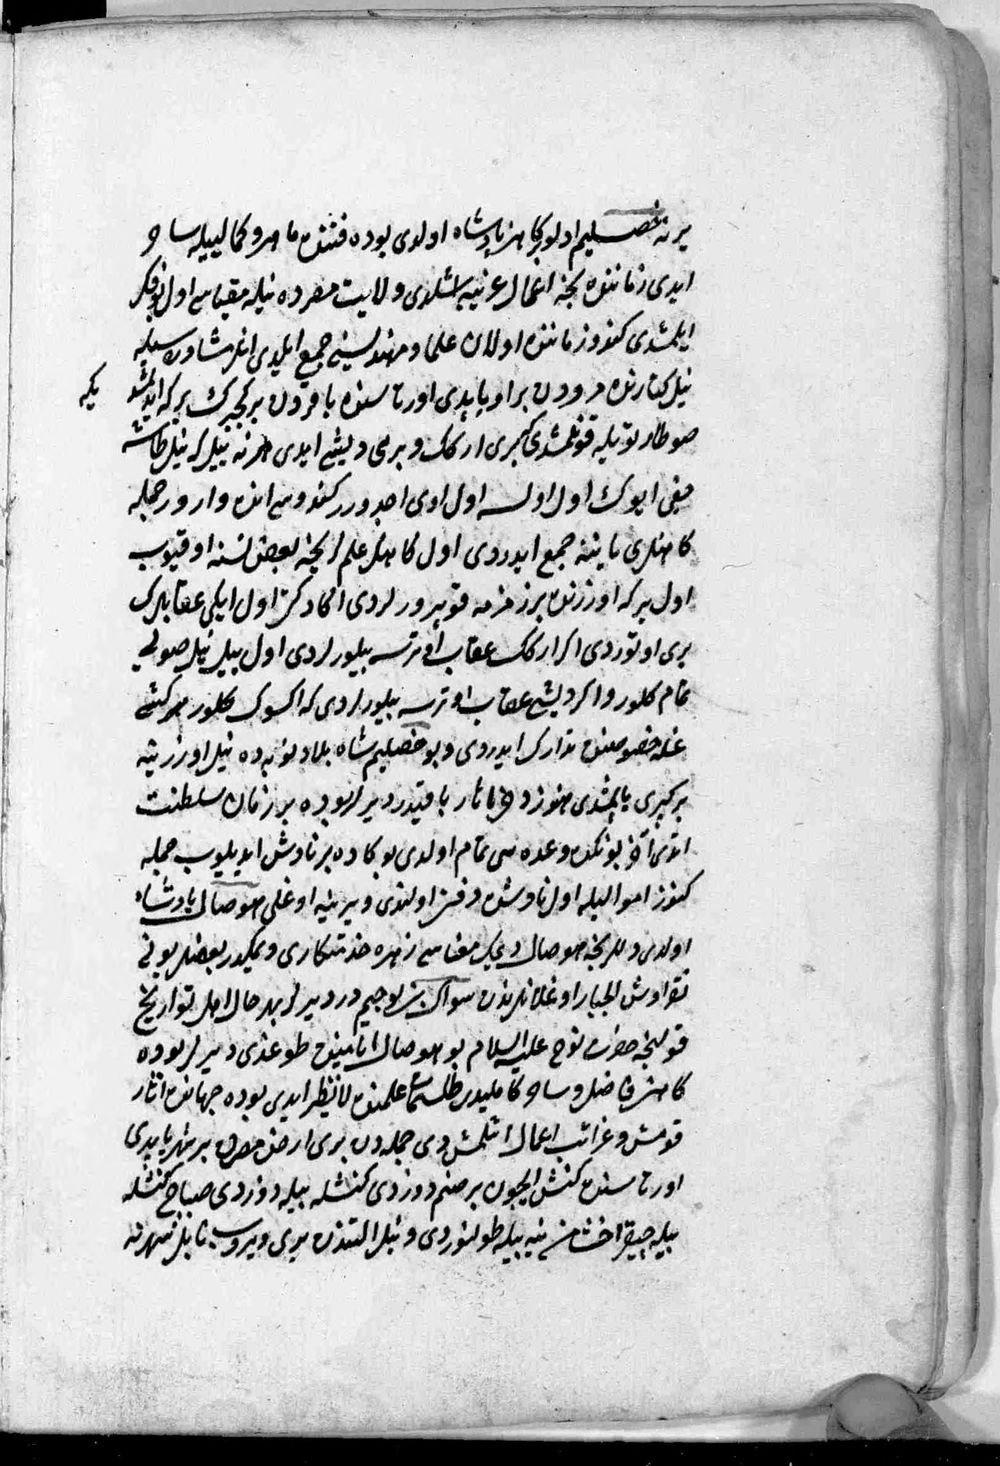 یرنه خصلیم اولو کاهن پادشاه اولدی بوده فننده ماهر و کمالیله ساحر
ایدی زماننده نجه اعمال غریبه اشلدی ولایت مصرده نیله مقیاسی اول
ایلمشدی کندو زماننده اولان علما و مهندسینی جمع ایلدی انلر مشاوره سیله
نیل کنارنده بر او یاپدی اورتاسنده باقردن بر کجیرک برکه ایتمشدی
یکی
صو طلدر ایکی عقاب قونلمشدی بری ارکک و بری دیشی ایدی هر نه ییل که نیل طاشه
اول اولسه اول اوی اچدورر کندوسی انده وارور جمله
کاهنلری یاننه جمع ایدردی اول کاهنلر علملرنجه بعض نسنه اوقیوب
اول برکه اوزرنده بر زمزمه قوپرورلردی اول ایکی عقابدک
بری اوتوردی اگر ارکک عقاب اوترسه بیلورلردی اول ییل نیل صویی
تمام کلور و اگر دیشی عقاب اوترسه بیلورلردی که اکسوک کلور هر کشی
غله خصوصنده تدارک ایدردی و بو خصلیم شاه بلاد نوبه ده نیل اوزرینه
بر کپری یاپمشدی هنوز دخی اثار باقیدر دیرلر بوده بر زمان سلطنت
ایتدی اخر بونکده وعده سی تمام اولدی بوکا ده بر ناوش ایدیلوب جمله
کنوز اموالیله اول ناوشده دفن اولندی و یرینه اوغلی هوصال پادشاه
اولدی دللرنجه هوصال دیمک معناسی زهره خدمتکاری دیمکدر بعضلر بونی
نقراوش الجبار اوغلانلرندن سواک بن لوجیم در دیرلر بهر حال اهل تواریخ
قولنجه حضرت نوح علیه السلام بو هوصال ایامنده طوغدی دیرلر بوده
کاهن و فاضل و ساحر کامل ایدی طلسمات علمنده لا نظیر ایدی بوده جهانده اثار
قومش و غرائب اعمال اتلمش دی جمله دن بری ارض مصرده بر شهر یاپدی
اورتاسنده کنش ایچون بر صنم دوزدی کنشله بیله دونردی صباح کنشله
بیله چیقر اخشام ینه بیله طولنوردی و نیل التندن یری شهرنه